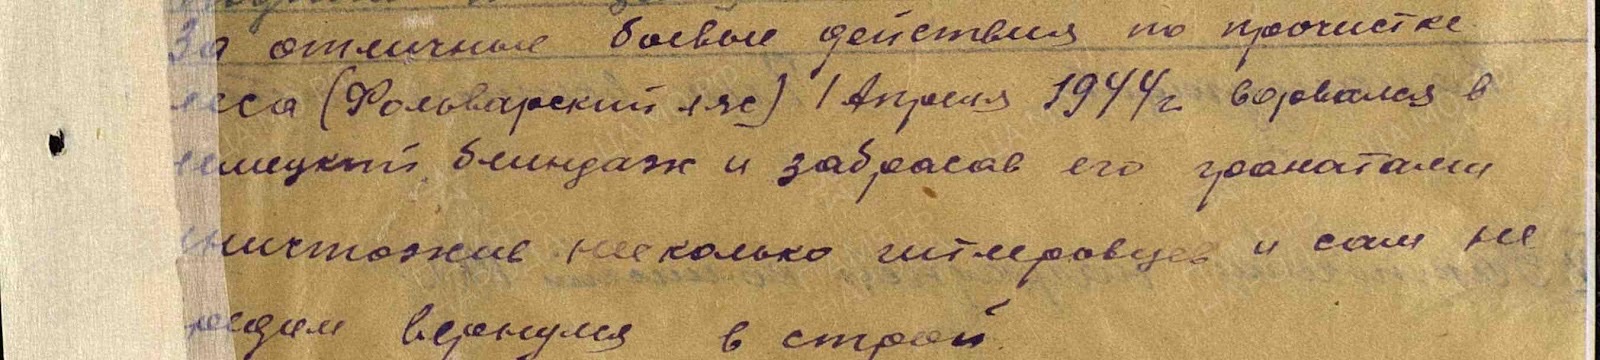 За отличные боевые действия по прочистке
леса (Фольварский ляс) 1 Апреля 1944 г ворвался в
немецкий блиндаж и забрасав его гранатами
уничтожив несколько гитлеровцев и сам не
вредим вернулся в строй.